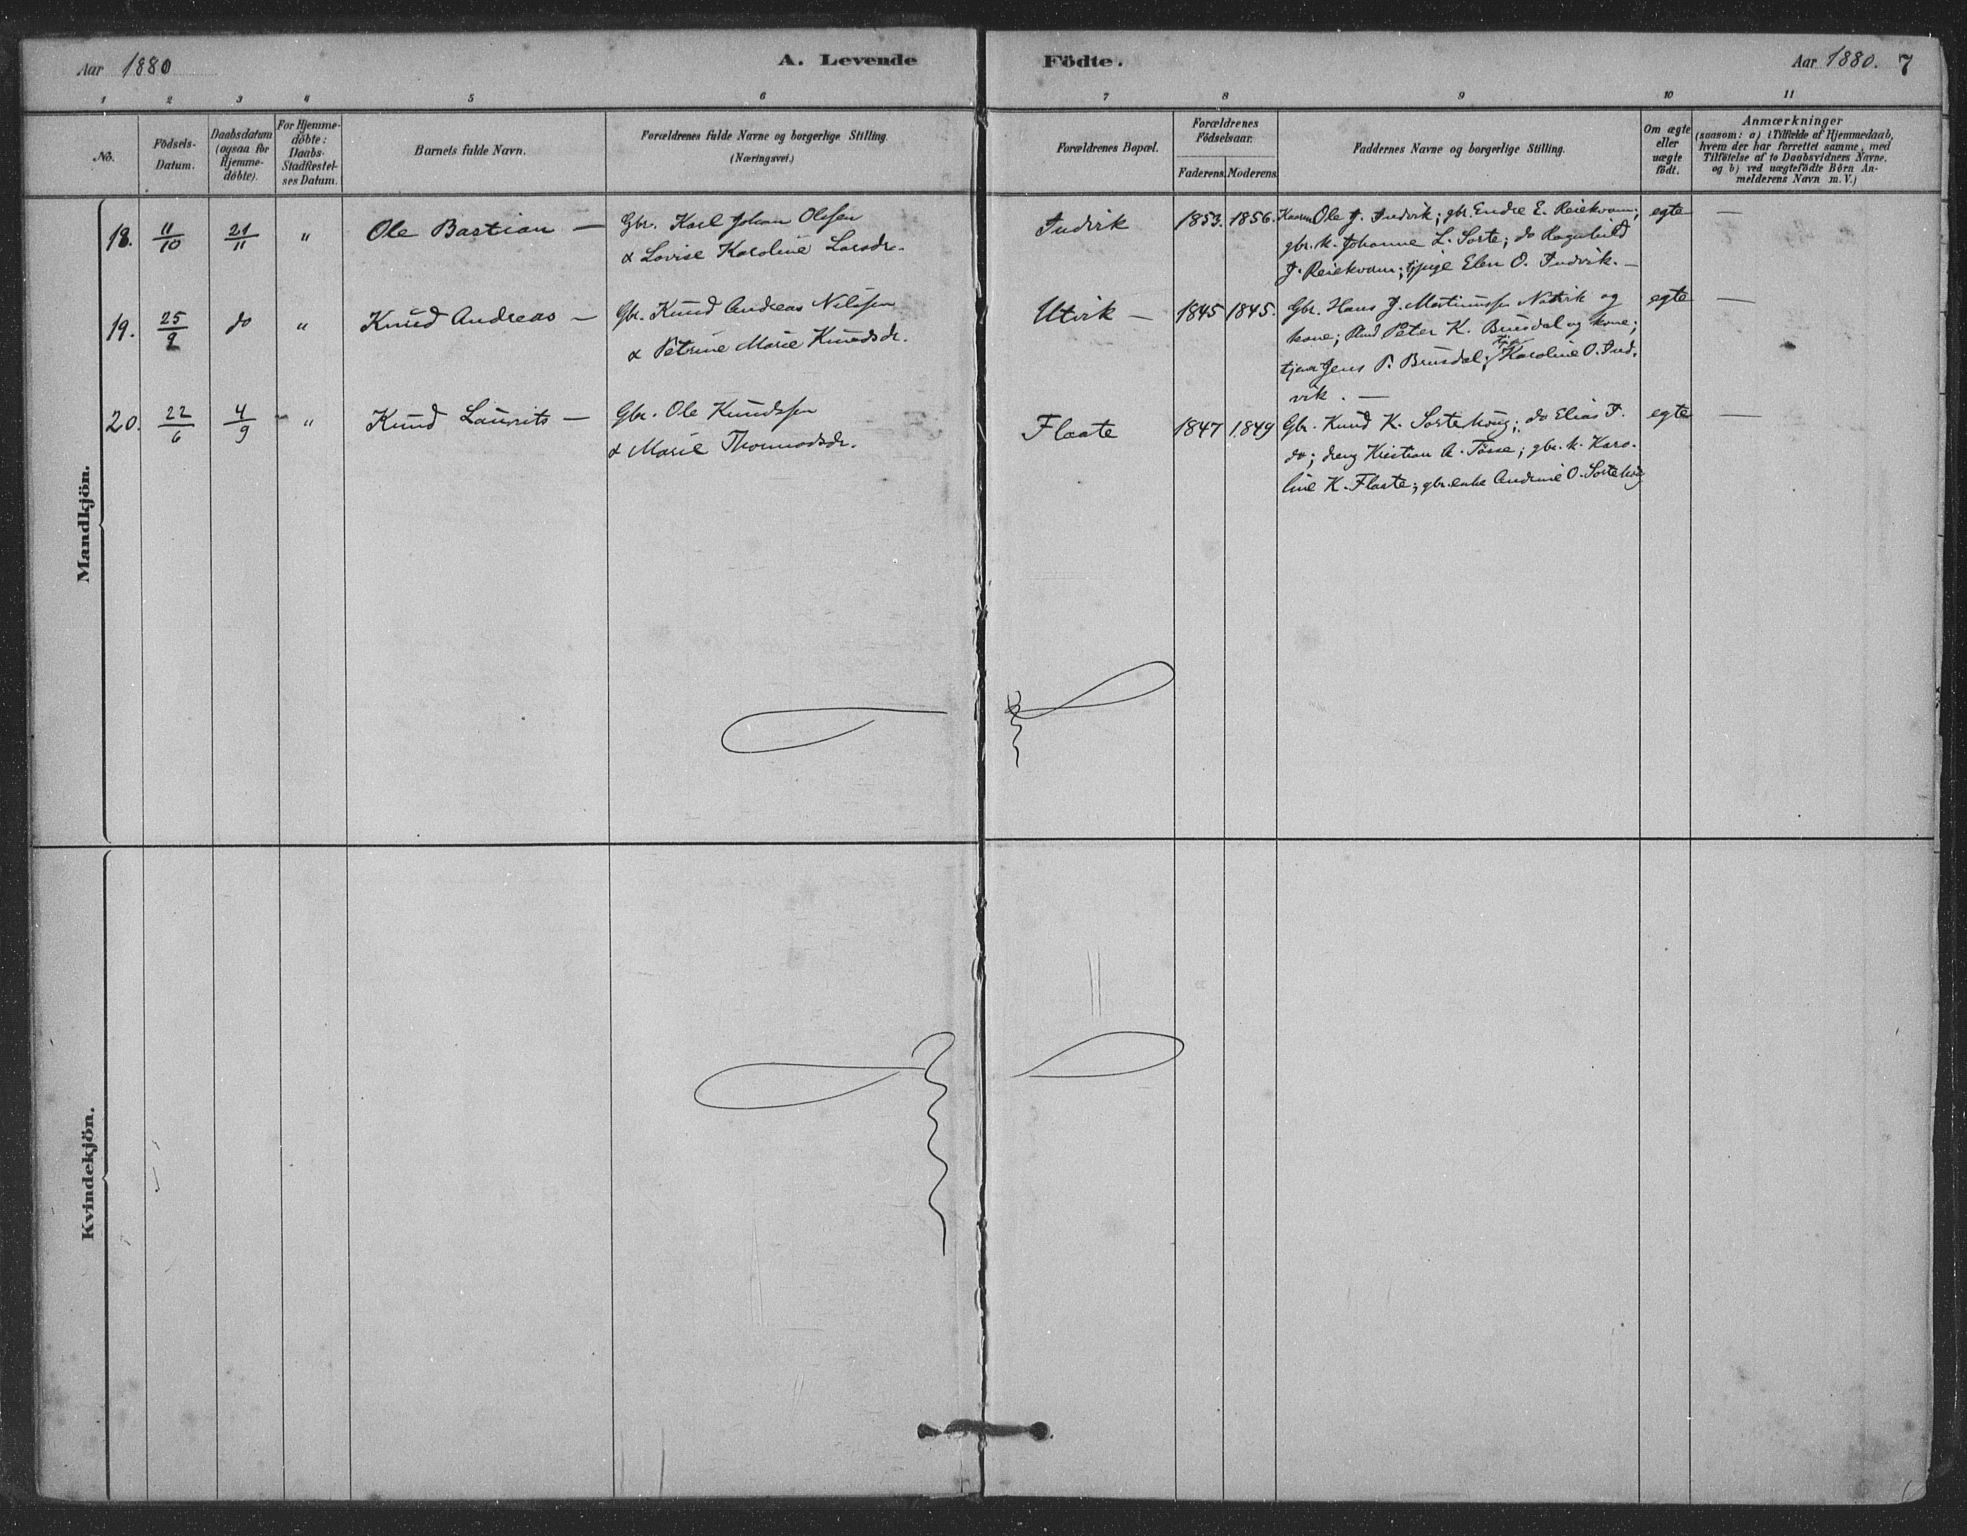 Aar 1880
A. Levende
Födte.
Aar 1880. 7
1 2 3 4 5 6 7 8 9 10 11
No.
Födsels-
Datum.
Daabsdatum
(ogsaa for
Hjemme-
döbte).
For Hjemme-
döbte:
Daabs-
Stadfæstel-
ses Datum.
Barnets fulde Navn.
Forældrenes fulde Navne og borgerlige Stilling.
(Næringsvei.)
Forældrenes Bopæl.
Forældrenes
Födselsaar.
Faderens. Moderens.
Faddernes Navne og borgerlige Stilling.
Om ægte
eller
uægte
födt.
Anmærkninger
(saasom: a) i Tilfælde af Hjemmedaab,
hvem der har forrettet samme, med
Tilföielse af to Daabsvidners Navne,
og b) ved uægtefödte Börn An-
melderens Navn m. V.)
Mandkjön.
18. 11/10 21/11 " Ole Bastian —
Gbr. Karl Johan Olsen
& Lovise Karoline Larsdr.
Indvik 1853. 1856.
Ole J. Indvik; gbr. Endre E. Reiekvam;
gbr. k. Johanne L. Sorte; do Ragnhild
J. Reiekvam; tjpige Elen O. Indvik. —
egte —
19. 25/9 do " Knud Andreas —
Gbr. Knud Andreas Nilssen
& Petrine Marie Knudsdr.
Utvik — 1845 1845.
Gbr. Hans J. Martinussen og
kone; Peter K. Brusdal og kone;
tjener Jens P. Brusdal; Karoline O. Ind-
vik. —
egte —
20. 22/6 4/9 " Knud Laurits —
Gbr. Ole Knudssen
& Marie Thormodsdr.
Flaate 1847 1849
Gbr. Knud K. Sortehoug; do Elias T.
do; dreng Kristian A. Tosse; gbr. k. Karo-
line K. Flaate; gbr.enke Andrine O. Sortehoug
egte —
Kvindekjön.